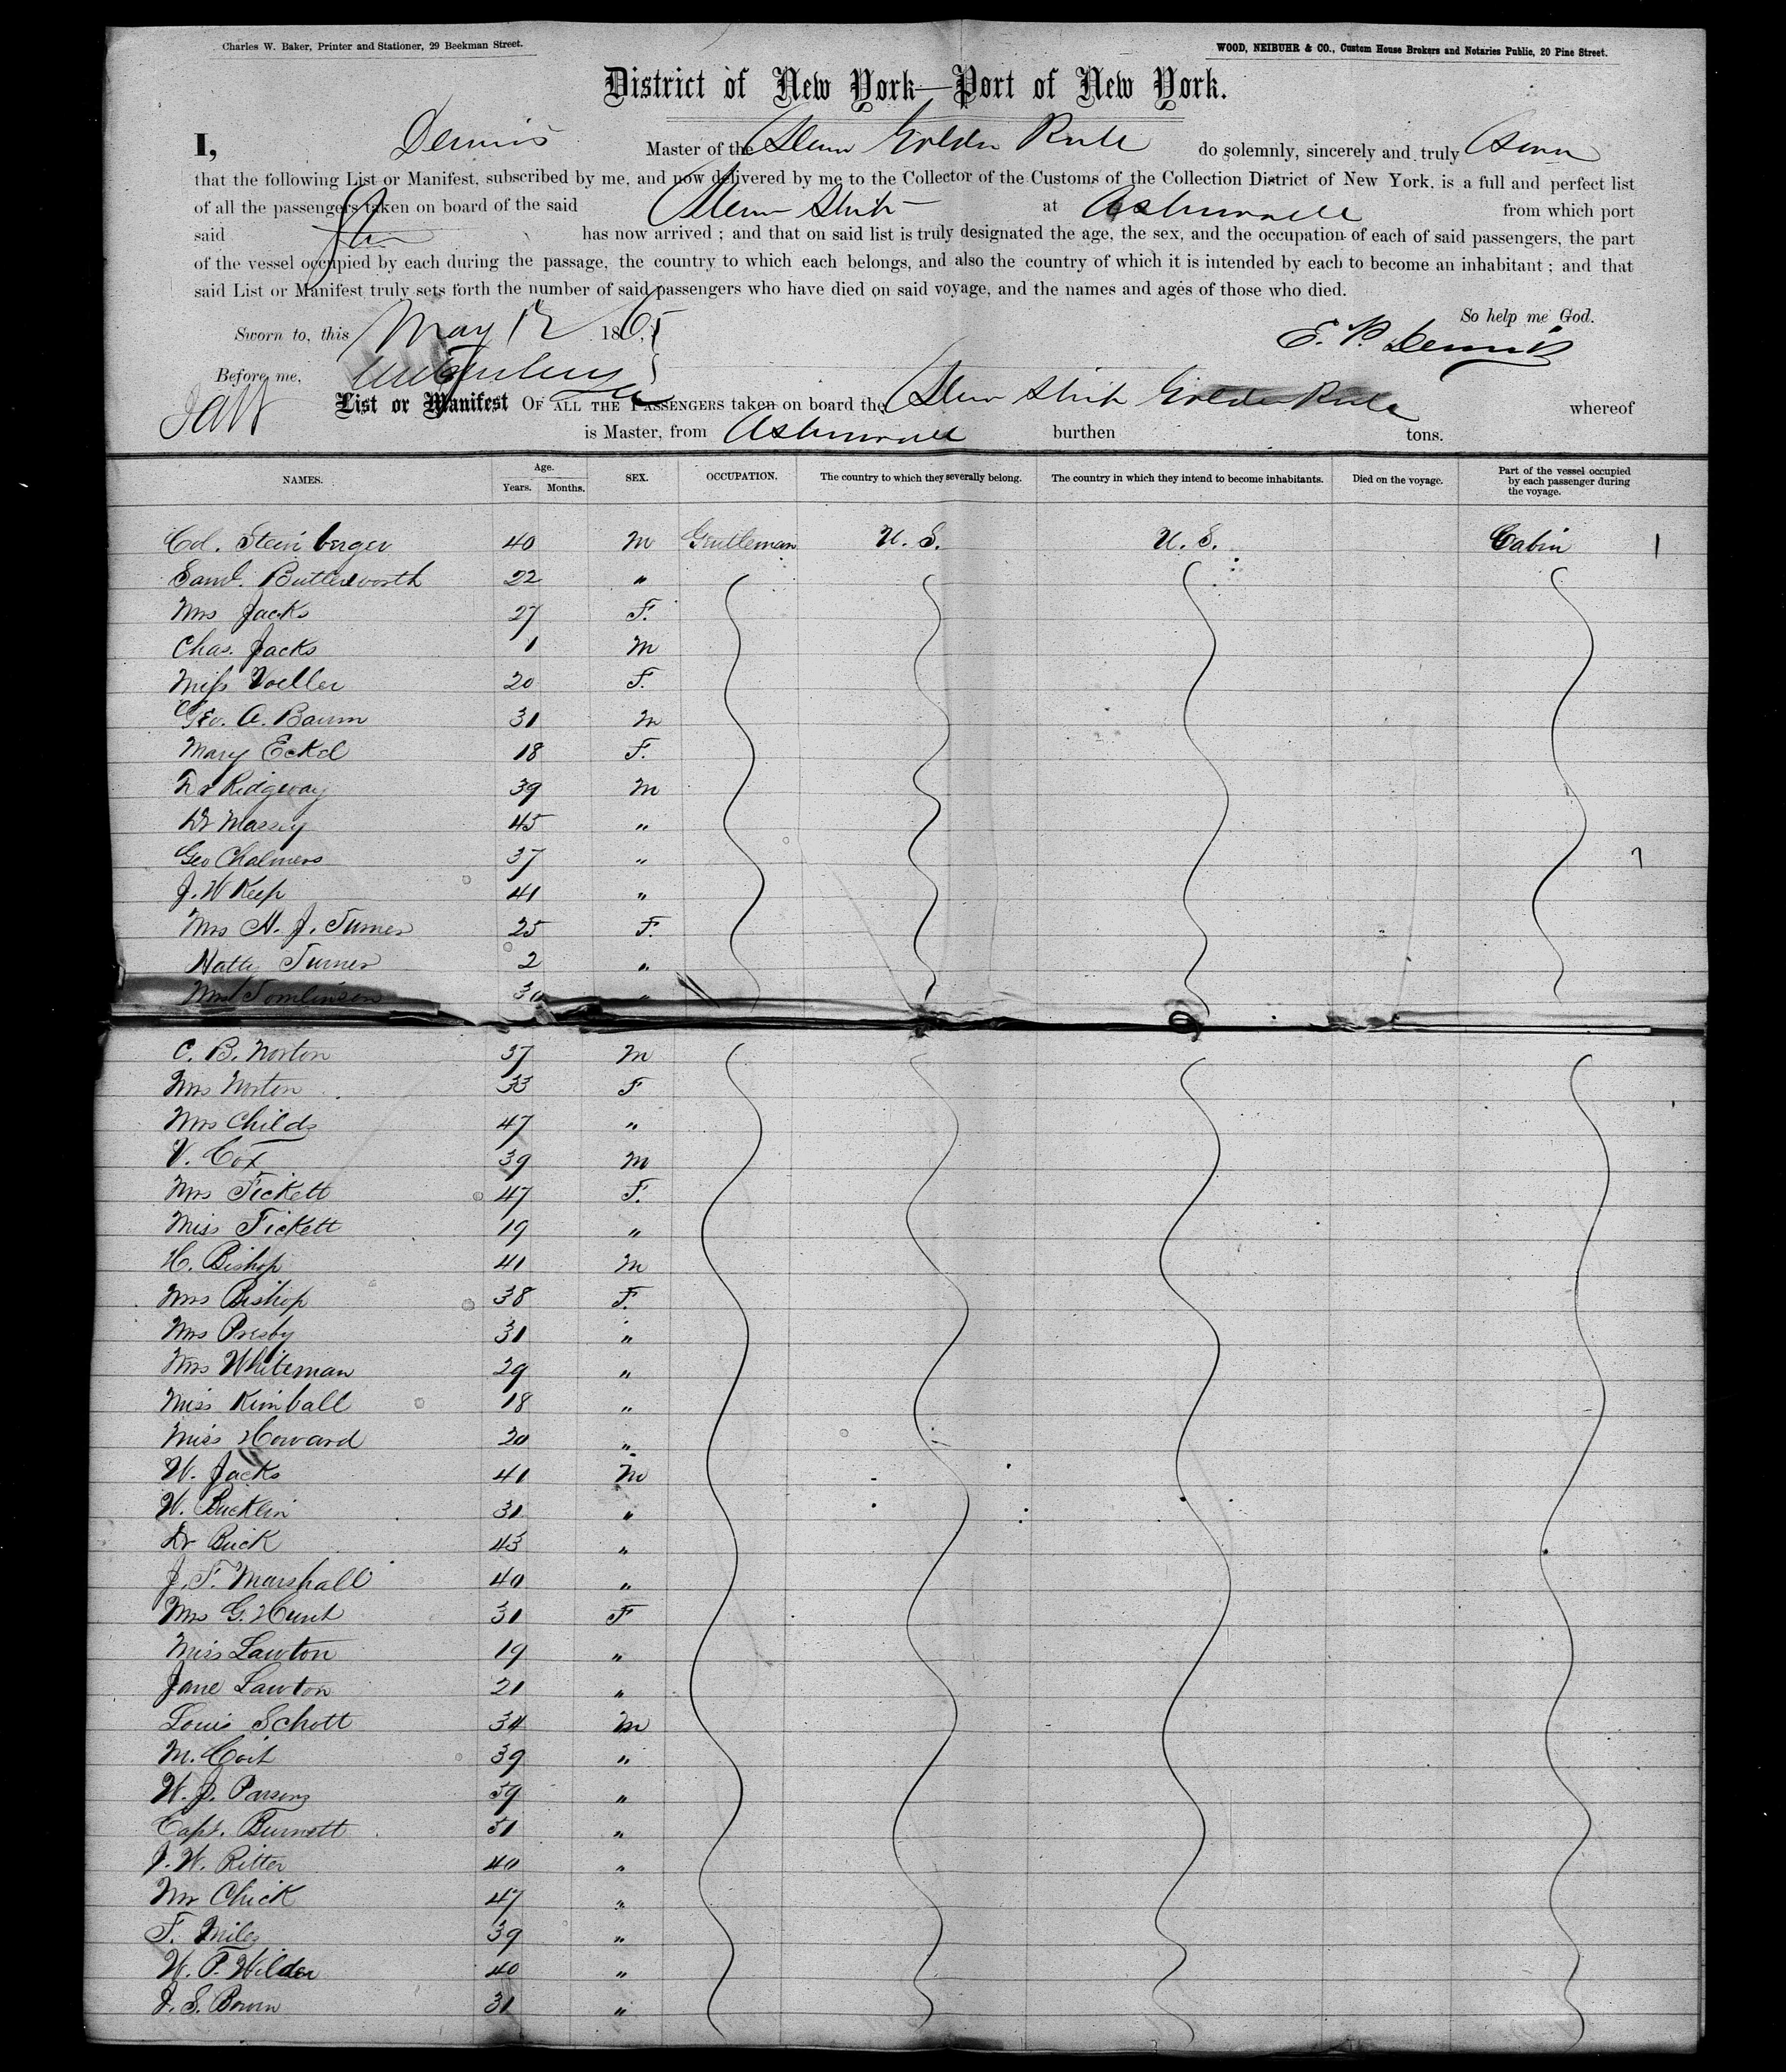 Charles W. Baker, Printer and Stationer, 29 Beekman Street.
WOOD, NEIBUHR & CO., Custom House Brokers and Notaries Public, 20 Pine Street.
District of New York—Port of New York.
I, Dennis Master of the Golden Rule do solemnly, sincerely and truly
that the following List or Manifest, subscribed by me, and now delivered by me to the Collector of the Customs of the Collection District of New York, is a full and perfect list
of all the passengers taken on board of the said Steam Ship at Aspinwall from which port
said has now arrived; and that on said list is truly designated the age, the sex, and the occupation of each of said passengers, the part
of the vessel occupied by each during the passage, the country to which each belongs, and also the country of which it is intended by each to become an inhabitant; and that
said List or Manifest truly sets forth the number of said passengers who have died on said voyage, and the names and ages of those who died.
So help me God.
Sworn to, this May 12 1865 E. P. Dennis
Before me,
List or Manifest OF ALL THE PASSENGERS taken on board the Steam Ship Golden Rule whereof
is Master, from Aspinwall burthen tons.
NAMES. Age. Years. Months. SEX. OCCUPATION. The country to which they severally belong. The country in which they intend to become inhabitants. Died on the voyage. Part of the vessel occupied by each passenger during the voyage.
Col. Steinberger 40 M Gentleman U. S. U. S. Cabin 1
Saml. Butterworth 22 "
Mrs Jacks 27 F.
Chas. Jacks 1 M
Miss Voeller 20 F.
Geo. A. Baum 31 M
Mary Eckel 18 F.
Dr Ridgway 39 M
Dr Massey 45 "
Geo Chalmers 37 "
J. W Keep 41 "
Mrs H. J. Turner 25 F.
Hatty Turner 2 "
Mrs Tomlinson 30 "
C. B. Norton 37 M
Mrs Norton 33 F
Mrs Childs 47 "
V. Cox 39 M
Mrs Fickett 47 F.
Miss Fickett 19 "
H. Bishop 41 M
Mrs Bishop 38 F.
Mrs Presby 31 "
Mrs Whiteman 29 "
Miss Kimball 18 "
Miss Howard 20 "
W. Jacks 41 M
W. Bucklin 31 "
Dr Buck 43 "
J. F. Marshall 40 "
Mrs G. Hunt 31 F
Miss Lawton 19 "
Jane Lawton 21 "
Louis Schott 34 M
M. Coit 39 "
W. J. Parsons 39 "
Capt. Burnett 51 "
J. W. Ritter 40 "
Mr Chick 47 "
F. Miles 39 "
W. P. Wilder 40 "
J. S. Bowen 31 "